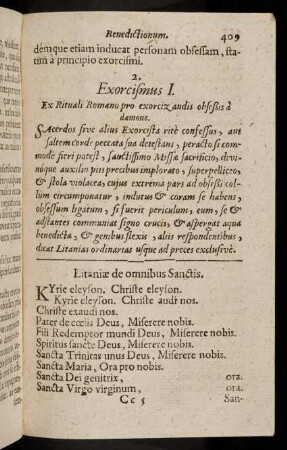 Benedictionum. 409
démque etiam inducat personam obsessam, sta-
tim à principio exorcismi.
2.
Exorcismus I.
Ex Rituali Romano pro exorcizandis obsessis à
dæmone.
SAcerdos sive alius Exorcista ritè confessus, aut
saltem corde peccata sua detestans, peracto si com-
modè fieri potest, sanctissimo Missæ sacrificio, divi-
nóque auxilio piis precibus implorato, superpelliceo,
& stola violacea, cujus extrema pars ad obsessi col-
lum circumponatur, indutus & coram se habens,
obsessum ligatum, si fuerit periculum, eum, se &
adstantes communiat signo crucis, & aspergat aqua
benedicta, & genibus flexis, aliis respondentibus,
dicat Litanias ordinarias usque ad preces exclusivè.
Litaniæ de omnibus Sanctis.
KYrie eleyson. Christe eleyson.
Kyrie eleyson. Christe audi nos.
Christe exaudi nos.
Pater de cœlis Deus, Miserere nobis.
Fili Redemptor mundi Deus, Miserere nobis.
Spiritus sancte Deus, Miserere nobis.
Sancta Trinitas unus Deus, Miserere nobis.
Sancta Maria, Ora pro nobis.
Sancta Dei genitrix, ora.
Sancta Virgo virginum, ora.
Cc 5 San-